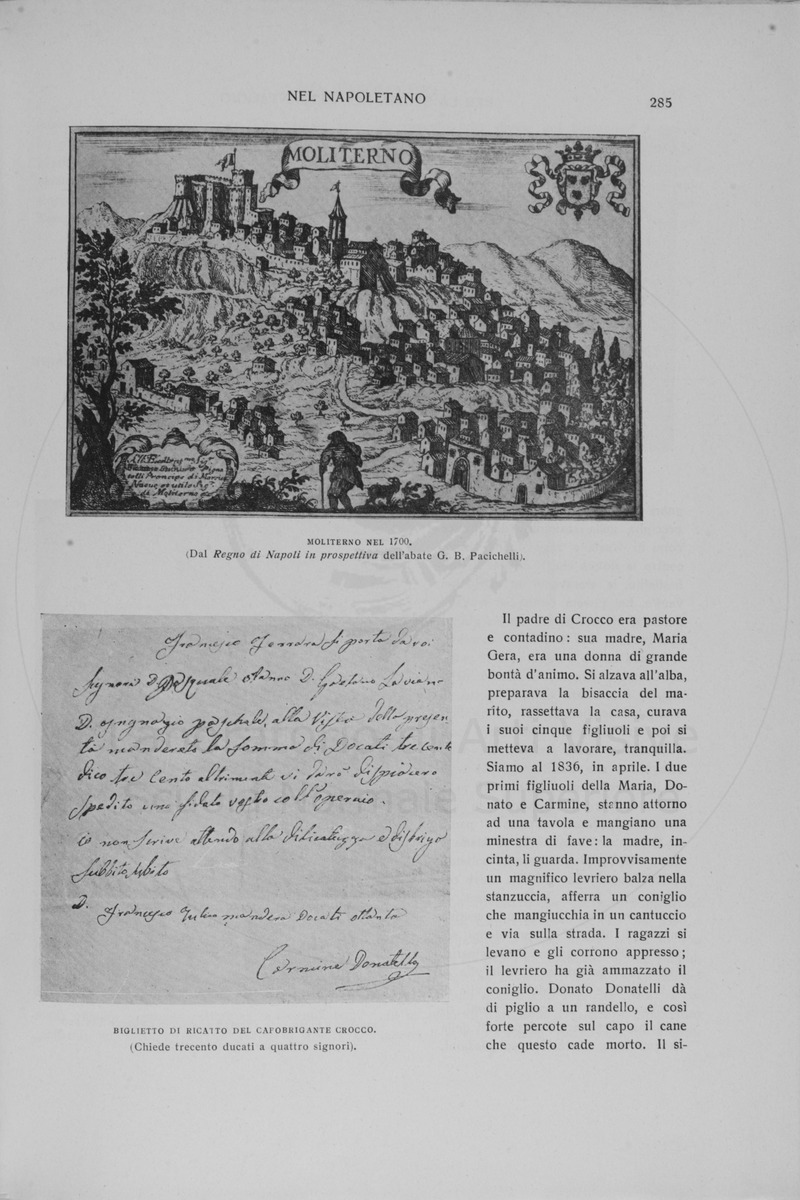 NEL NAPOLETANO
285
MOLITERNO
MOLITERNO NEL 1700.
(Dal Regno di Napoli in prospettiva dell'abate G. B. Pacichelli).
Francesco Ferrara si porta da voi
D. Pasquale
alla
la somma di Docati tre cento
dico tre Cento altrimenti vi
Spedito uno fidato vostro coll'operaio.
io non scrivo
Subbito subito
D. Francesco
Docati ottanta
Carmine Donatelli
BIGLIETTO DI RICATTO DEL CAPOBRIGANTE CROCCO.
(Chiede trecento ducati a quattro signori).
Il padre di Crocco era pastore
e contadino: sua madre, Maria
Gera, era una donna di grande
bontà d'animo. Si alzava all'alba,
preparava la bisaccia del ma-
rito, rassettava la casa, curava
i suoi cinque figliuoli e poi si
metteva a lavorare, tranquilla.
Siamo al 1836, in aprile. I due
primi figliuoli della Maria, Do-
nato e Carmine, stanno attorno
ad una tavola e mangiano una
minestra di fave: la madre, in-
cinta, li guarda. Improvvisamente
un magnifico levriero balza nella
stanzuccia, afferra un coniglio
che mangiucchia in un cantuccio
e via sulla strada. I ragazzi si
levano e gli corrono appresso;
il levriero ha già ammazzato il
coniglio. Donato Donatelli dà
di piglio a un randello, e così
forte percote sul capo il cane
che questo cade morto. Il si-